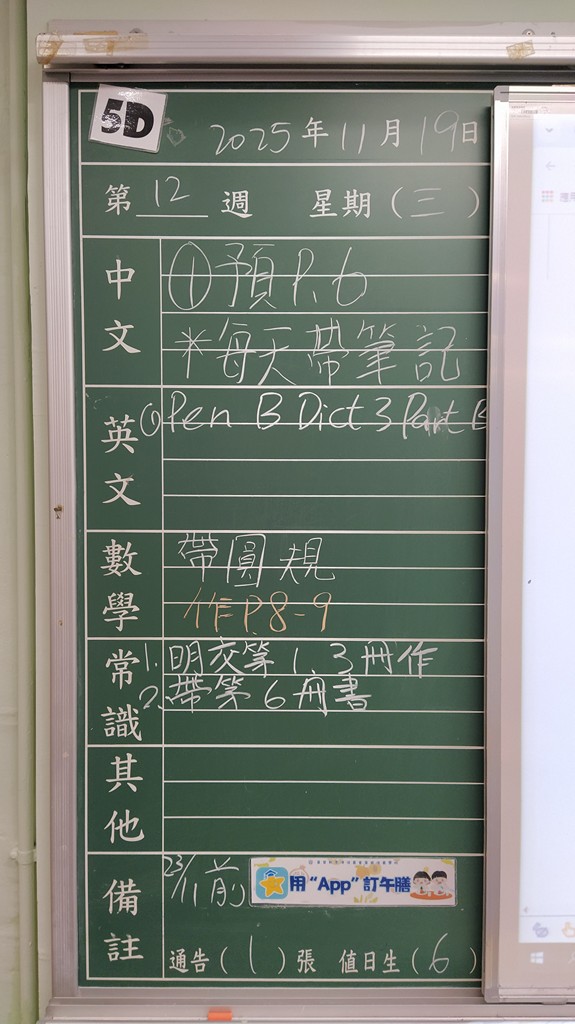 5D
2025年11月19日
第12週 星期(三)
中文
①預P.6
*每天帶筆記
英文
① Pen B Dict 3 Part B
數學
帶圓規
作P.8-9
常識
1. 明交第1、3冊作
2. 帶第6冊書
其他
備註
23/11前
用"App"訂午膳
通告(1)張 值日生(6)